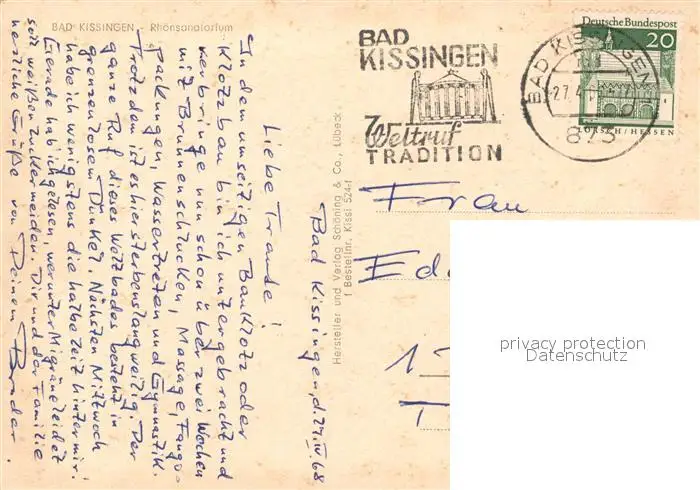 BAD KISSINGEN - Rhönsanatorium
Bad Kissingen, d. 24. IV. 68
Liebe Traude!
In dem umseitigen Bauklotz oder
Klotzbau bin ich untergebracht und
verbringe nun schon über zwei Wochen
mit Brunnenschlucken, Massage, Fango-
packungen, Wassertreten und Gymnastik.
Trotzdem ist es hier sterbenslangweilig. Der
ganze Ruf dieses Weltbades besteht in
grenzenlosem Dünkel. Nächsten Mittwoch
habe ich wenigstens die halbe Zeit hinter mir.
Gerade hab' ich gelesen, wer unter Migräne leidet
soll weißen Zucker meiden. Dir und der Familie
herzliche Grüße von Deinem Bruder.
Hersteller und Verlag Schöning & Co., Lübeck
Bestellnr. Kissi 524-f
BAD
KISSINGEN
Weltruf
TRADITION
BAD KISSINGEN
27.4.
873
Deutsche Bundespost
20
LORSCH/HESSEN
Frau
privacy protection
Datenschutz